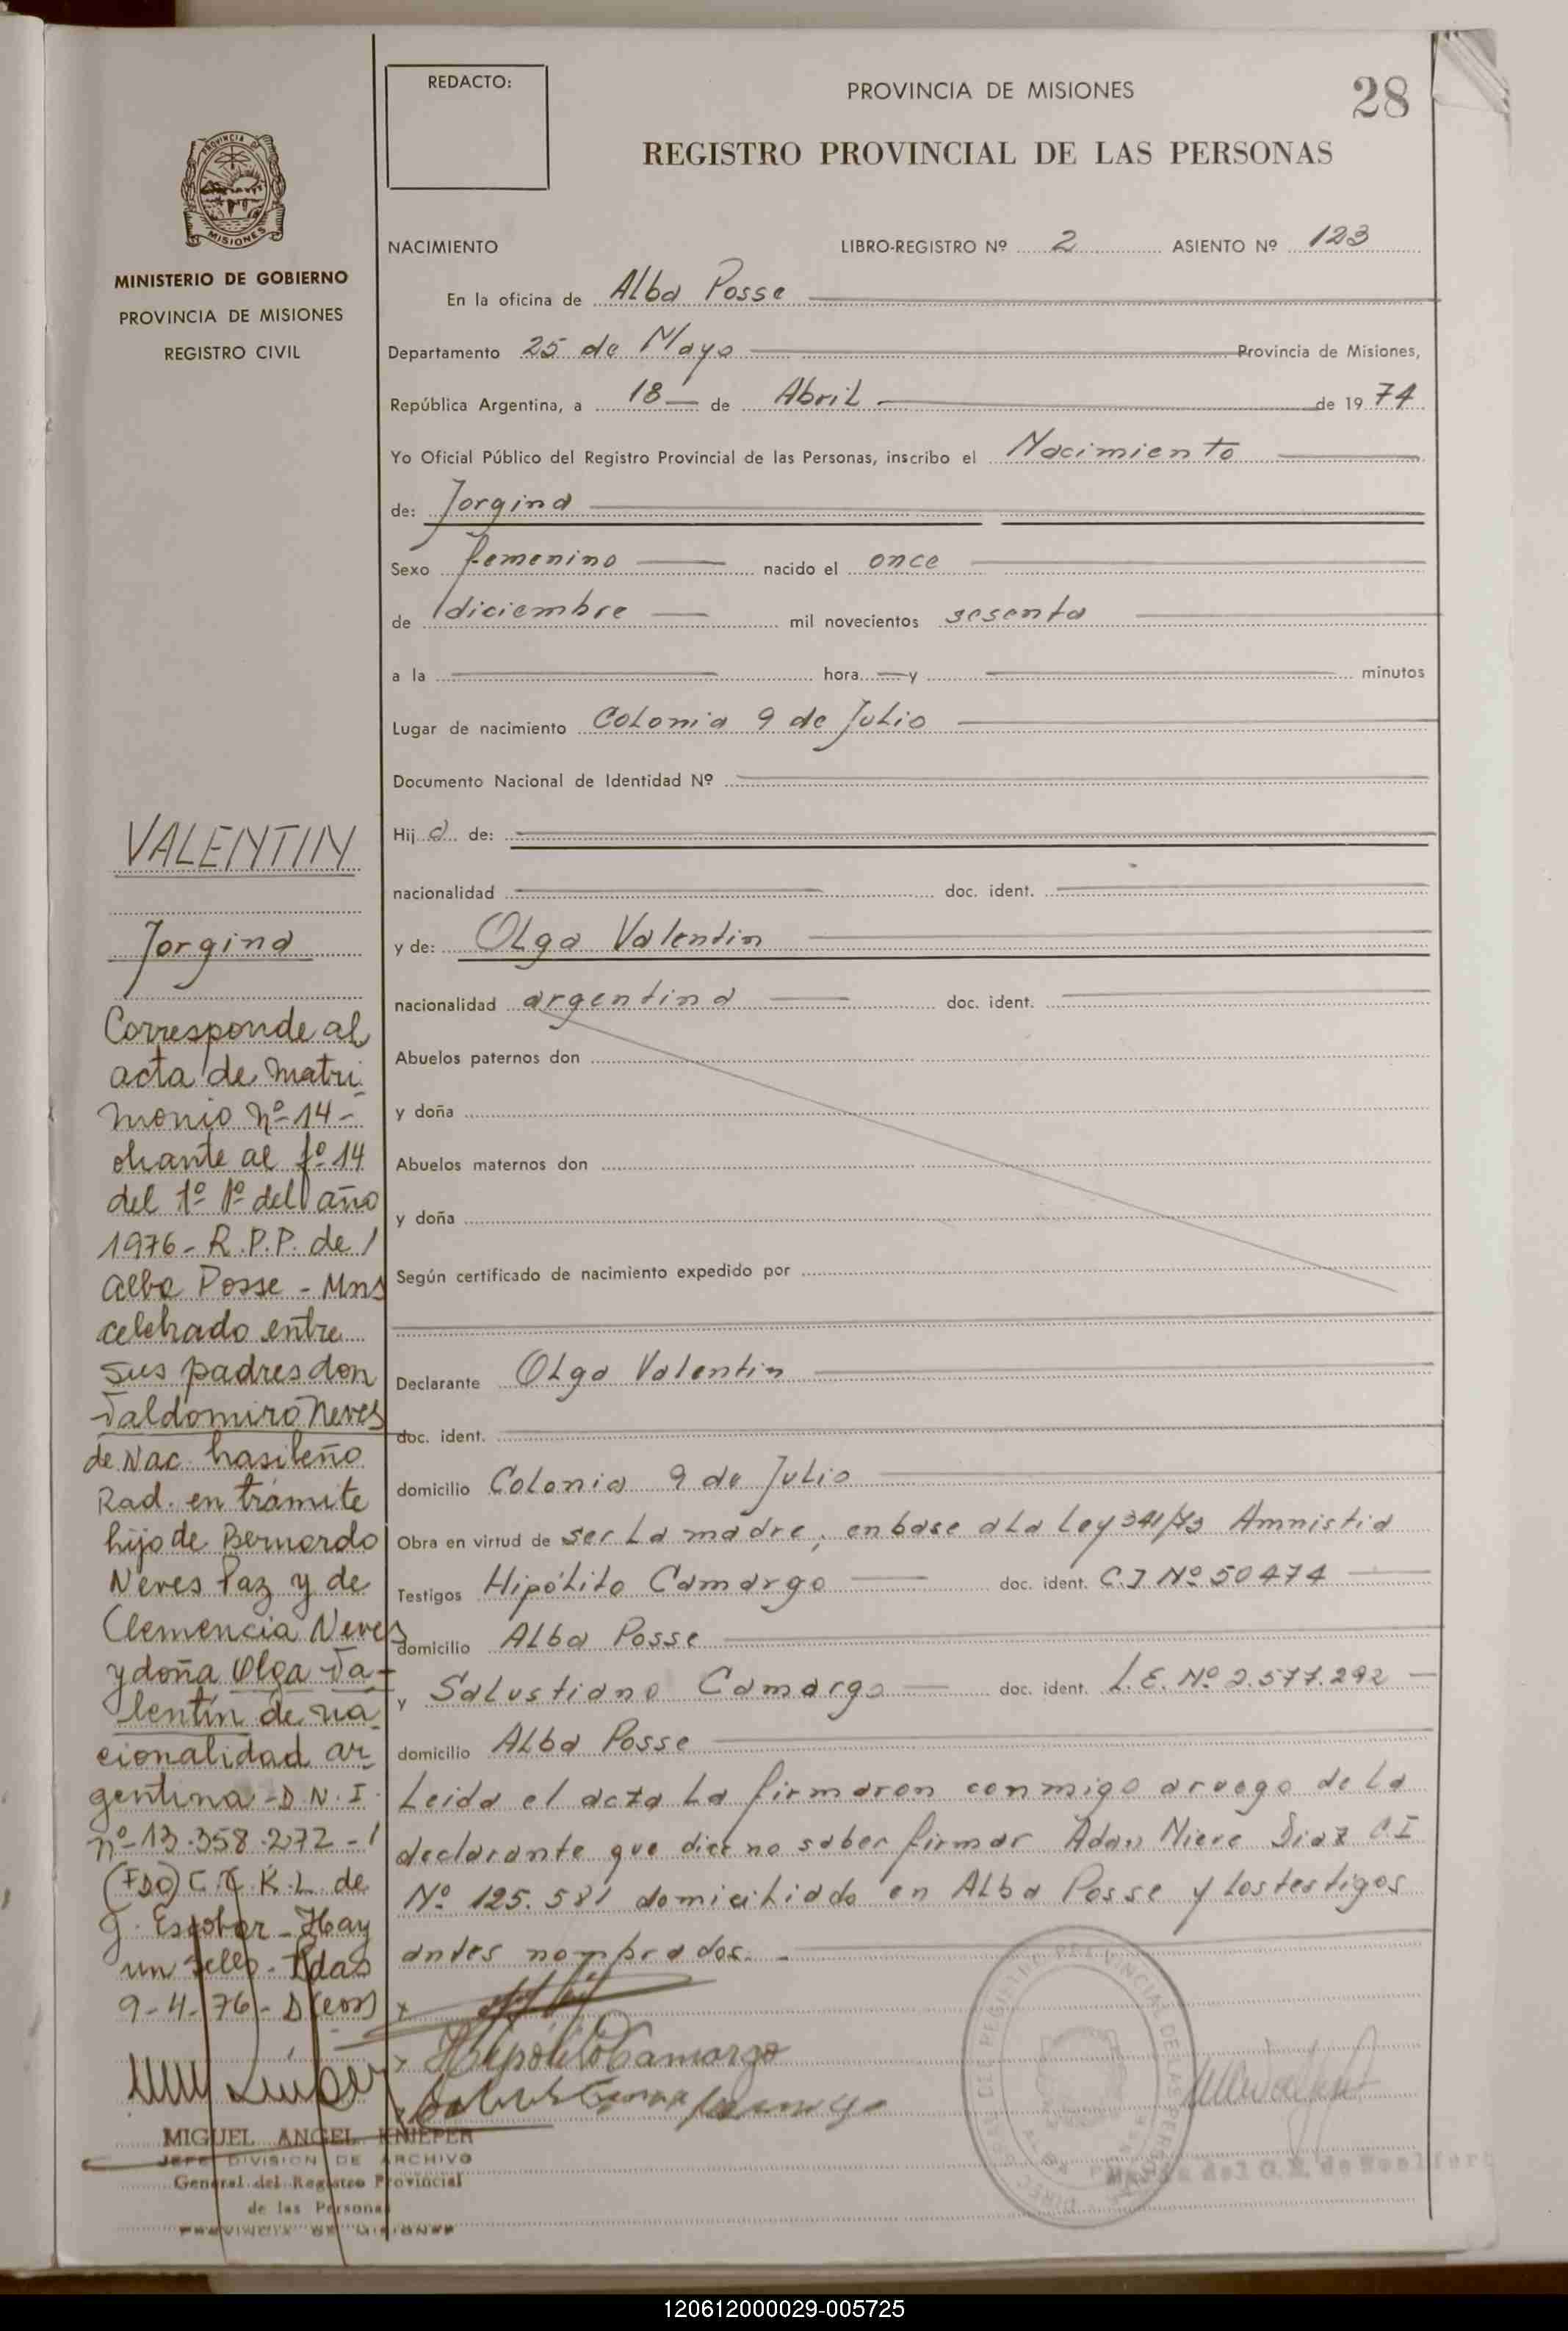 REDACTO:
PROVINCIA DE MISIONES
28
REGISTRO PROVINCIAL DE LAS PERSONAS
PROVINCIA DE
MISIONES
MINISTERIO DE GOBIERNO
PROVINCIA DE MISIONES
REGISTRO CIVIL
NACIMIENTO LIBRO-REGISTRO Nº 2 ASIENTO Nº 123
En la oficina de Alba Posse
Departamento 25 de Mayo Provincia de Misiones,
República Argentina, a 18 de Abril de 19 74
Yo Oficial Público del Registro Provincial de las Personas, inscribo el Nacimiento
de: Jorgina
Sexo femenino nacido el once
de diciembre mil novecientos sesenta
a la hora y minutos
Lugar de nacimiento Colonia 9 de Julio
Documento Nacional de Identidad Nº
Hij a de:
nacionalidad doc. ident.
y de: Olga Valentin
nacionalidad argentina doc. ident.
Abuelos paternos don
y doña
Abuelos maternos don
y doña
Según certificado de nacimiento expedido por
Declarante Olga Valentin
doc. ident.
domicilio Colonia 9 de Julio
Obra en virtud de ser la madre, en base a la Ley 341/73 Amnistia
Testigos Hipólito Camargo doc. ident. C.I Nº 50474
domicilio Alba Posse
y Salustiano Camargo doc. ident. L.E. Nº 2.577.292
domicilio Alba Posse
Leida el acta la firmaron conmigo a ruego de la
declarante que dice no saber firmar Adan Nieve Diaz C.I
Nº 125.581 domiciliado en Alba Posse y los testigos
antes nombrados.
Hipólito Camargo
VALENTIN
Jorgina
Corresponde al
acta de matri
monio nº 14-
obrante al fº 14
del 1º del año
1976- R.P.P. de
Alba Posse - Mns
celebrado entre
sus padres don
Valdomiro Neves
de Nac. brasileño
Rad. en trámite
hijo de Bernardo
Neves Paz y de
Clemencia Neves
y doña Olga Va-
lentín de na
cionalidad ar
gentina - D.N.I.
nº 13.358.272 -
(FDO) K.L. de
Escobar - Hay
un sello - Pdas
9-4-76-
MIGUEL ANGEL KNIEPER
JEFE DIVISION DE ARCHIVO
General del Registro Provincial
de las Personas
PROVINCIA DE MISIONES
120612000029-005725